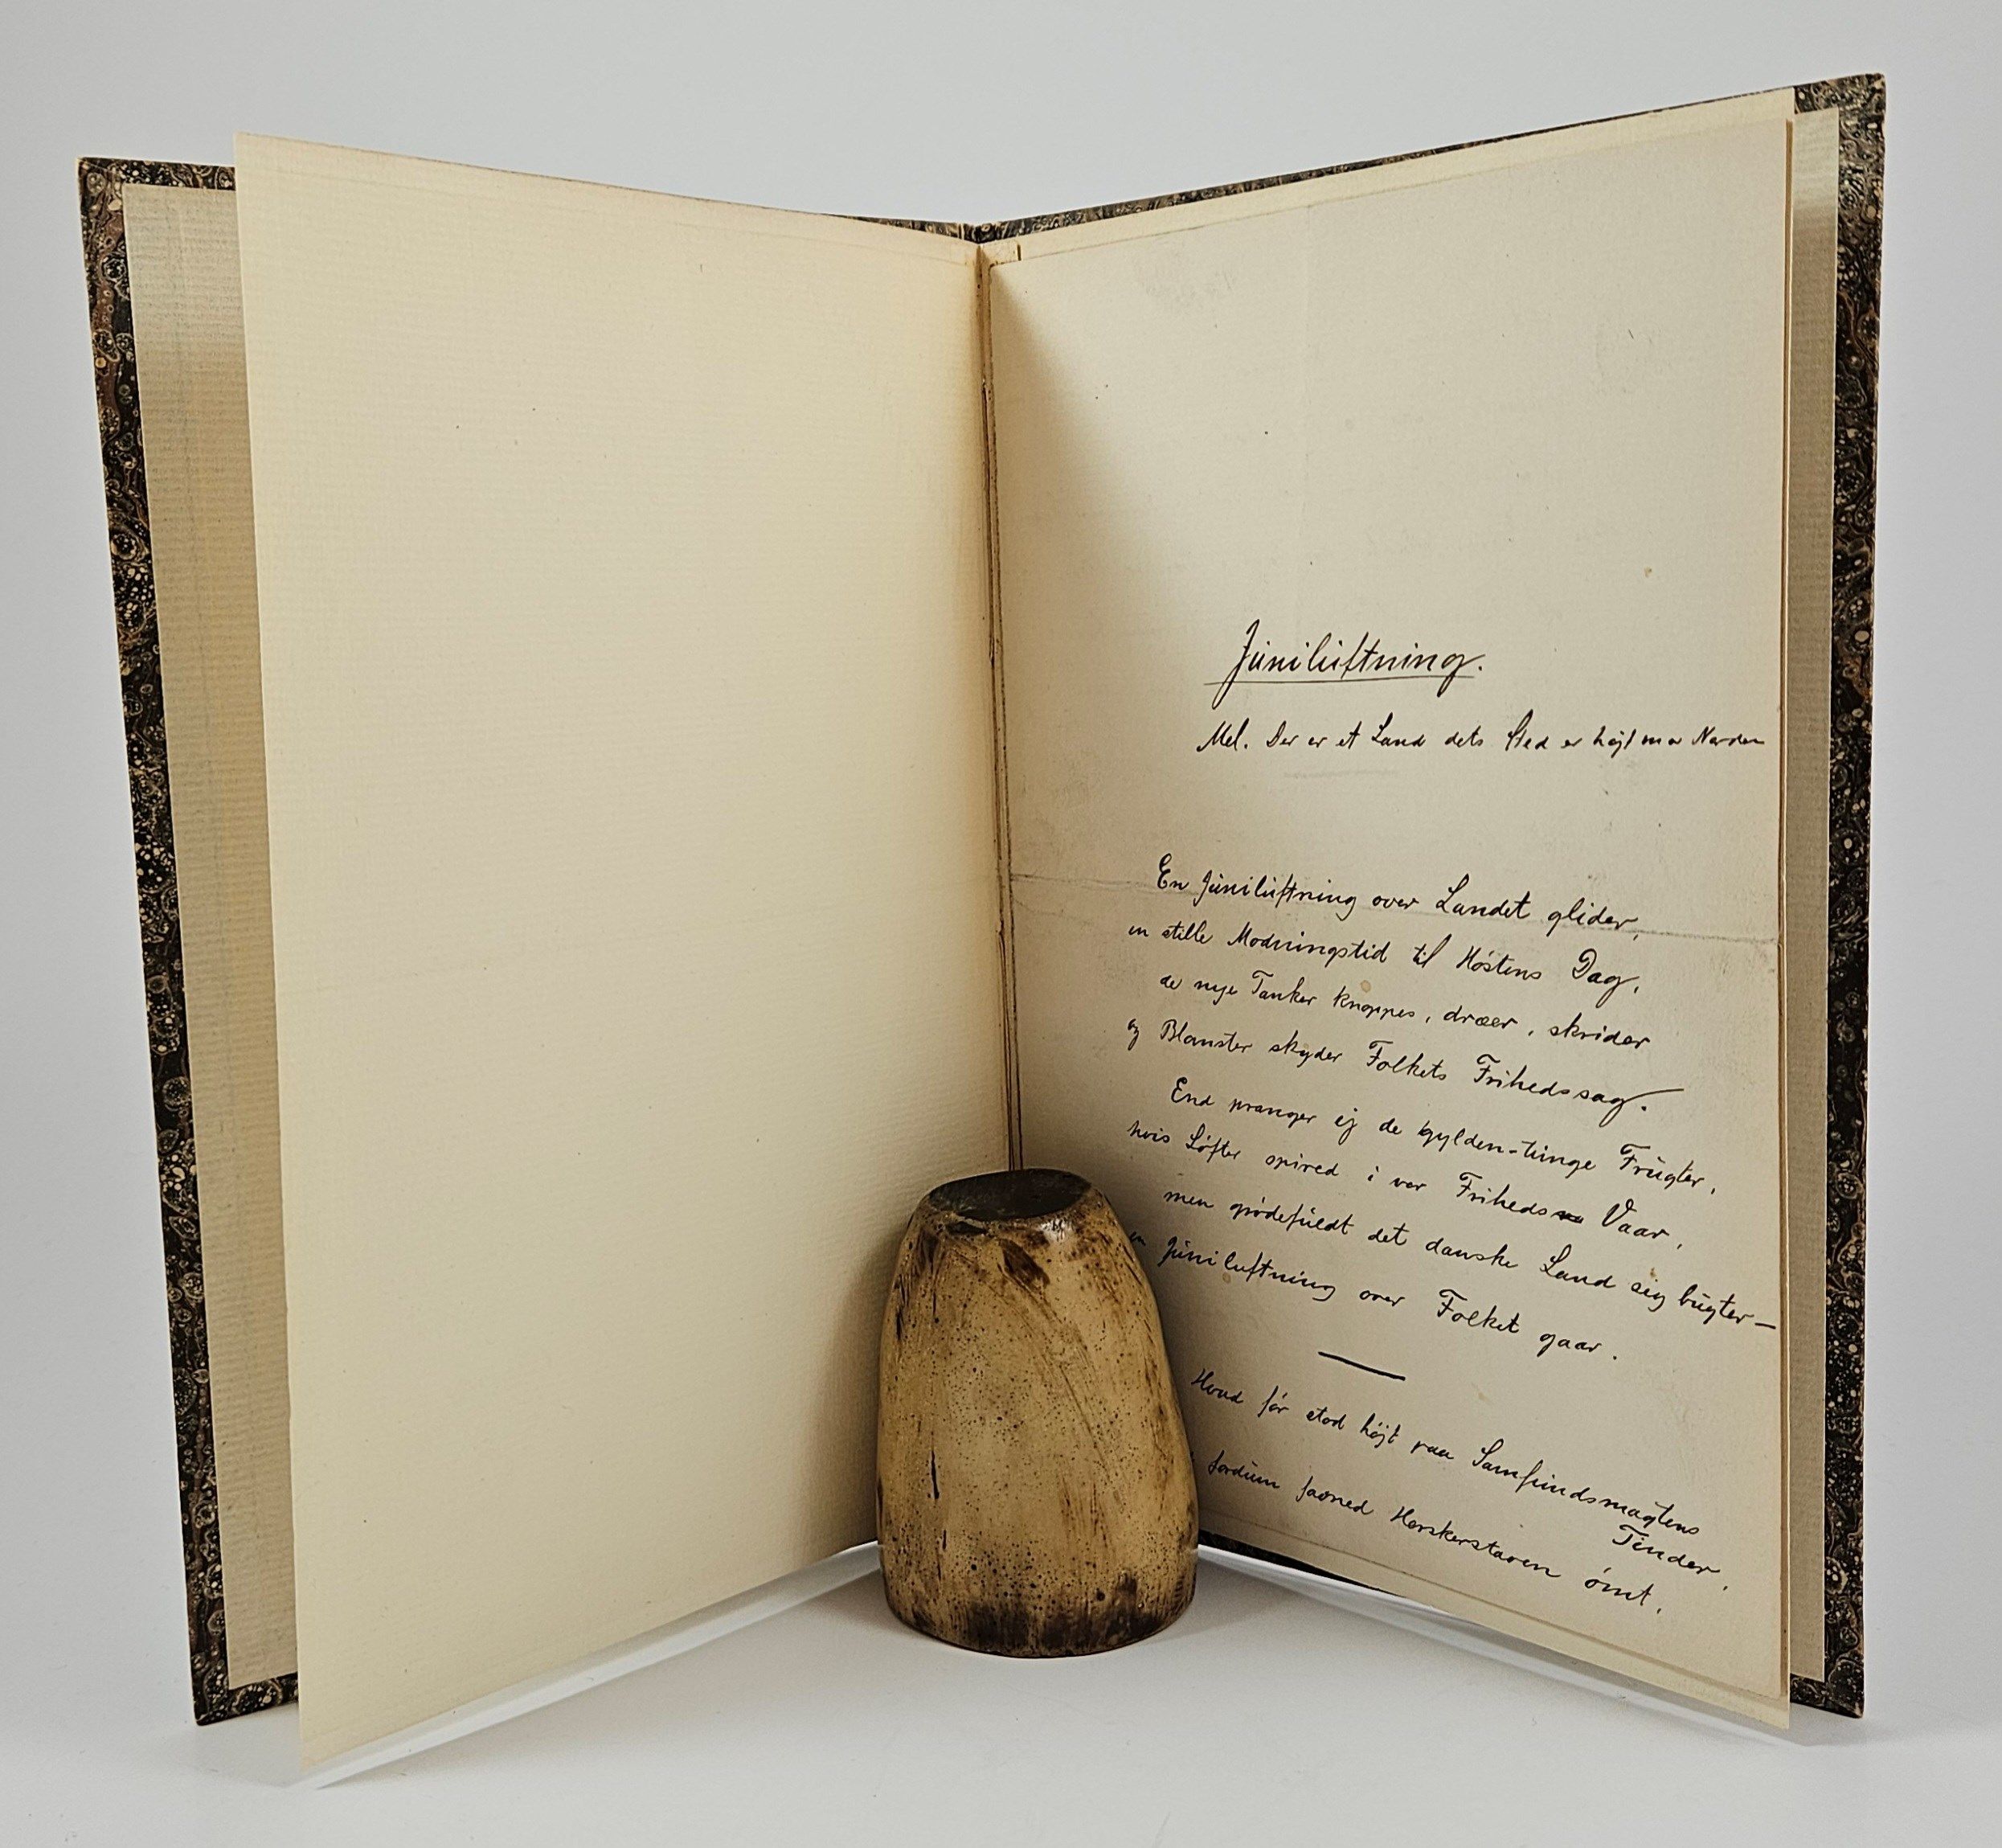 Juniluftning.
Mel. Der er et Land dets Sted er højt mod Norden
En Juniluftning over Landet glider,
en stille Modningstid til Høstens Dag,
de nye Tanker knoppes, dræer, skrider
og Blomster skyder Folkets Frihedssag.
End pranger ej de gylden-tunge Frugter,
hvis Løfter spired i vor Friheds Vaar,
men grødefuldt det danske Land sig bugter—
en Juniluftning over Folket gaar.
Hvad før stod højt paa Samfundsmagtens
Tinder,
fordum favned Herskerstaven ømt,